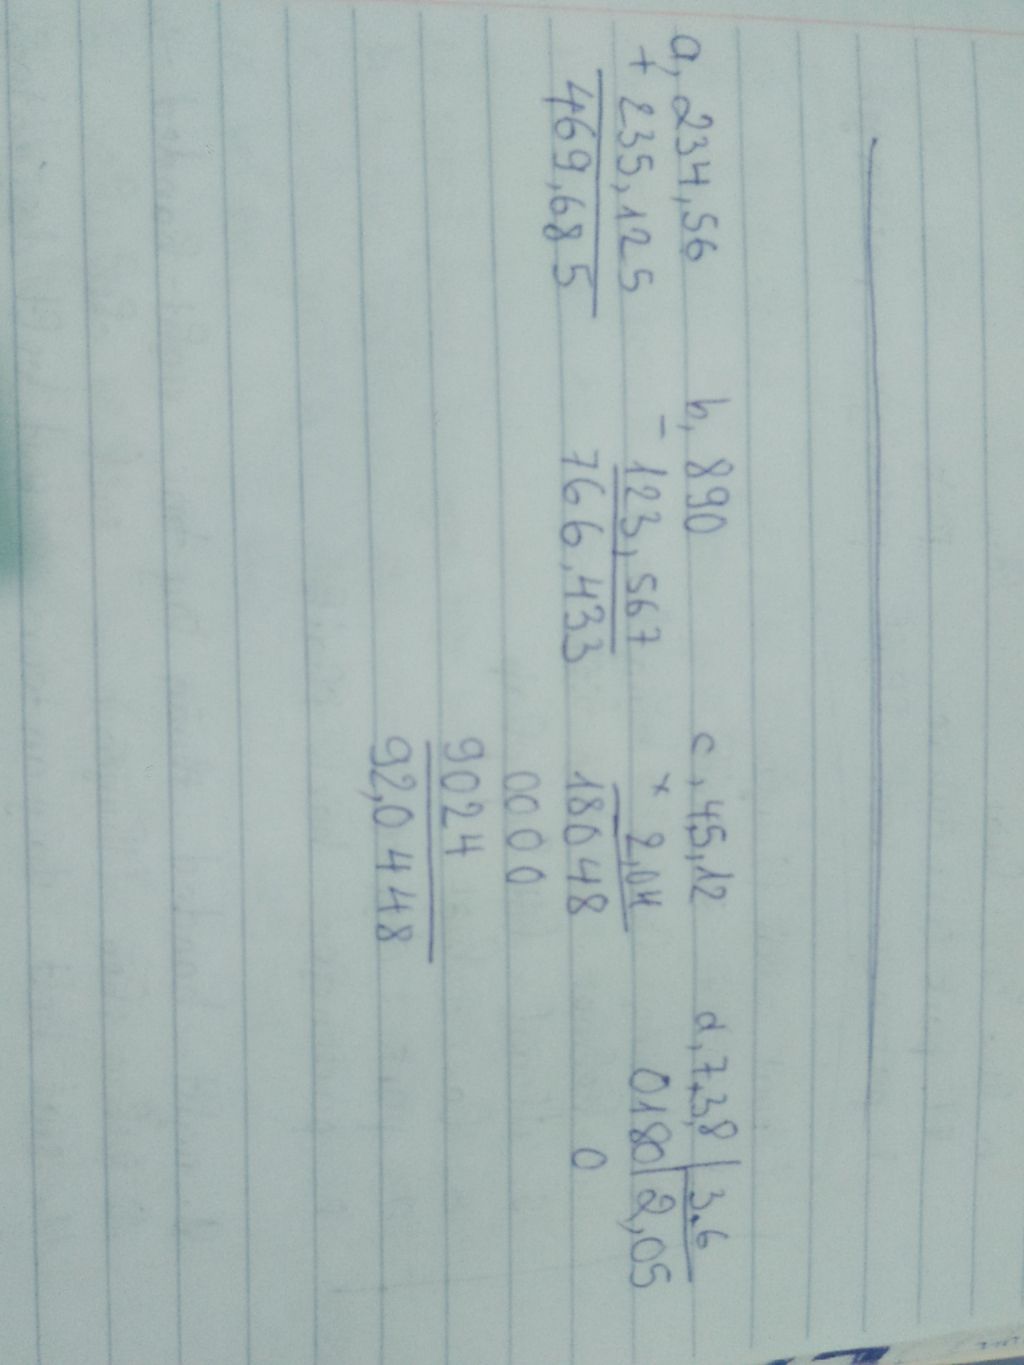 a, 234,56 b, 890 c, 45,12 d, 7,3,8 | 3,6
+ 235,125 - 123,567 x 2,04 0180 | 2,05
469,685 766,433 18048 0
0000
9024
92,0448